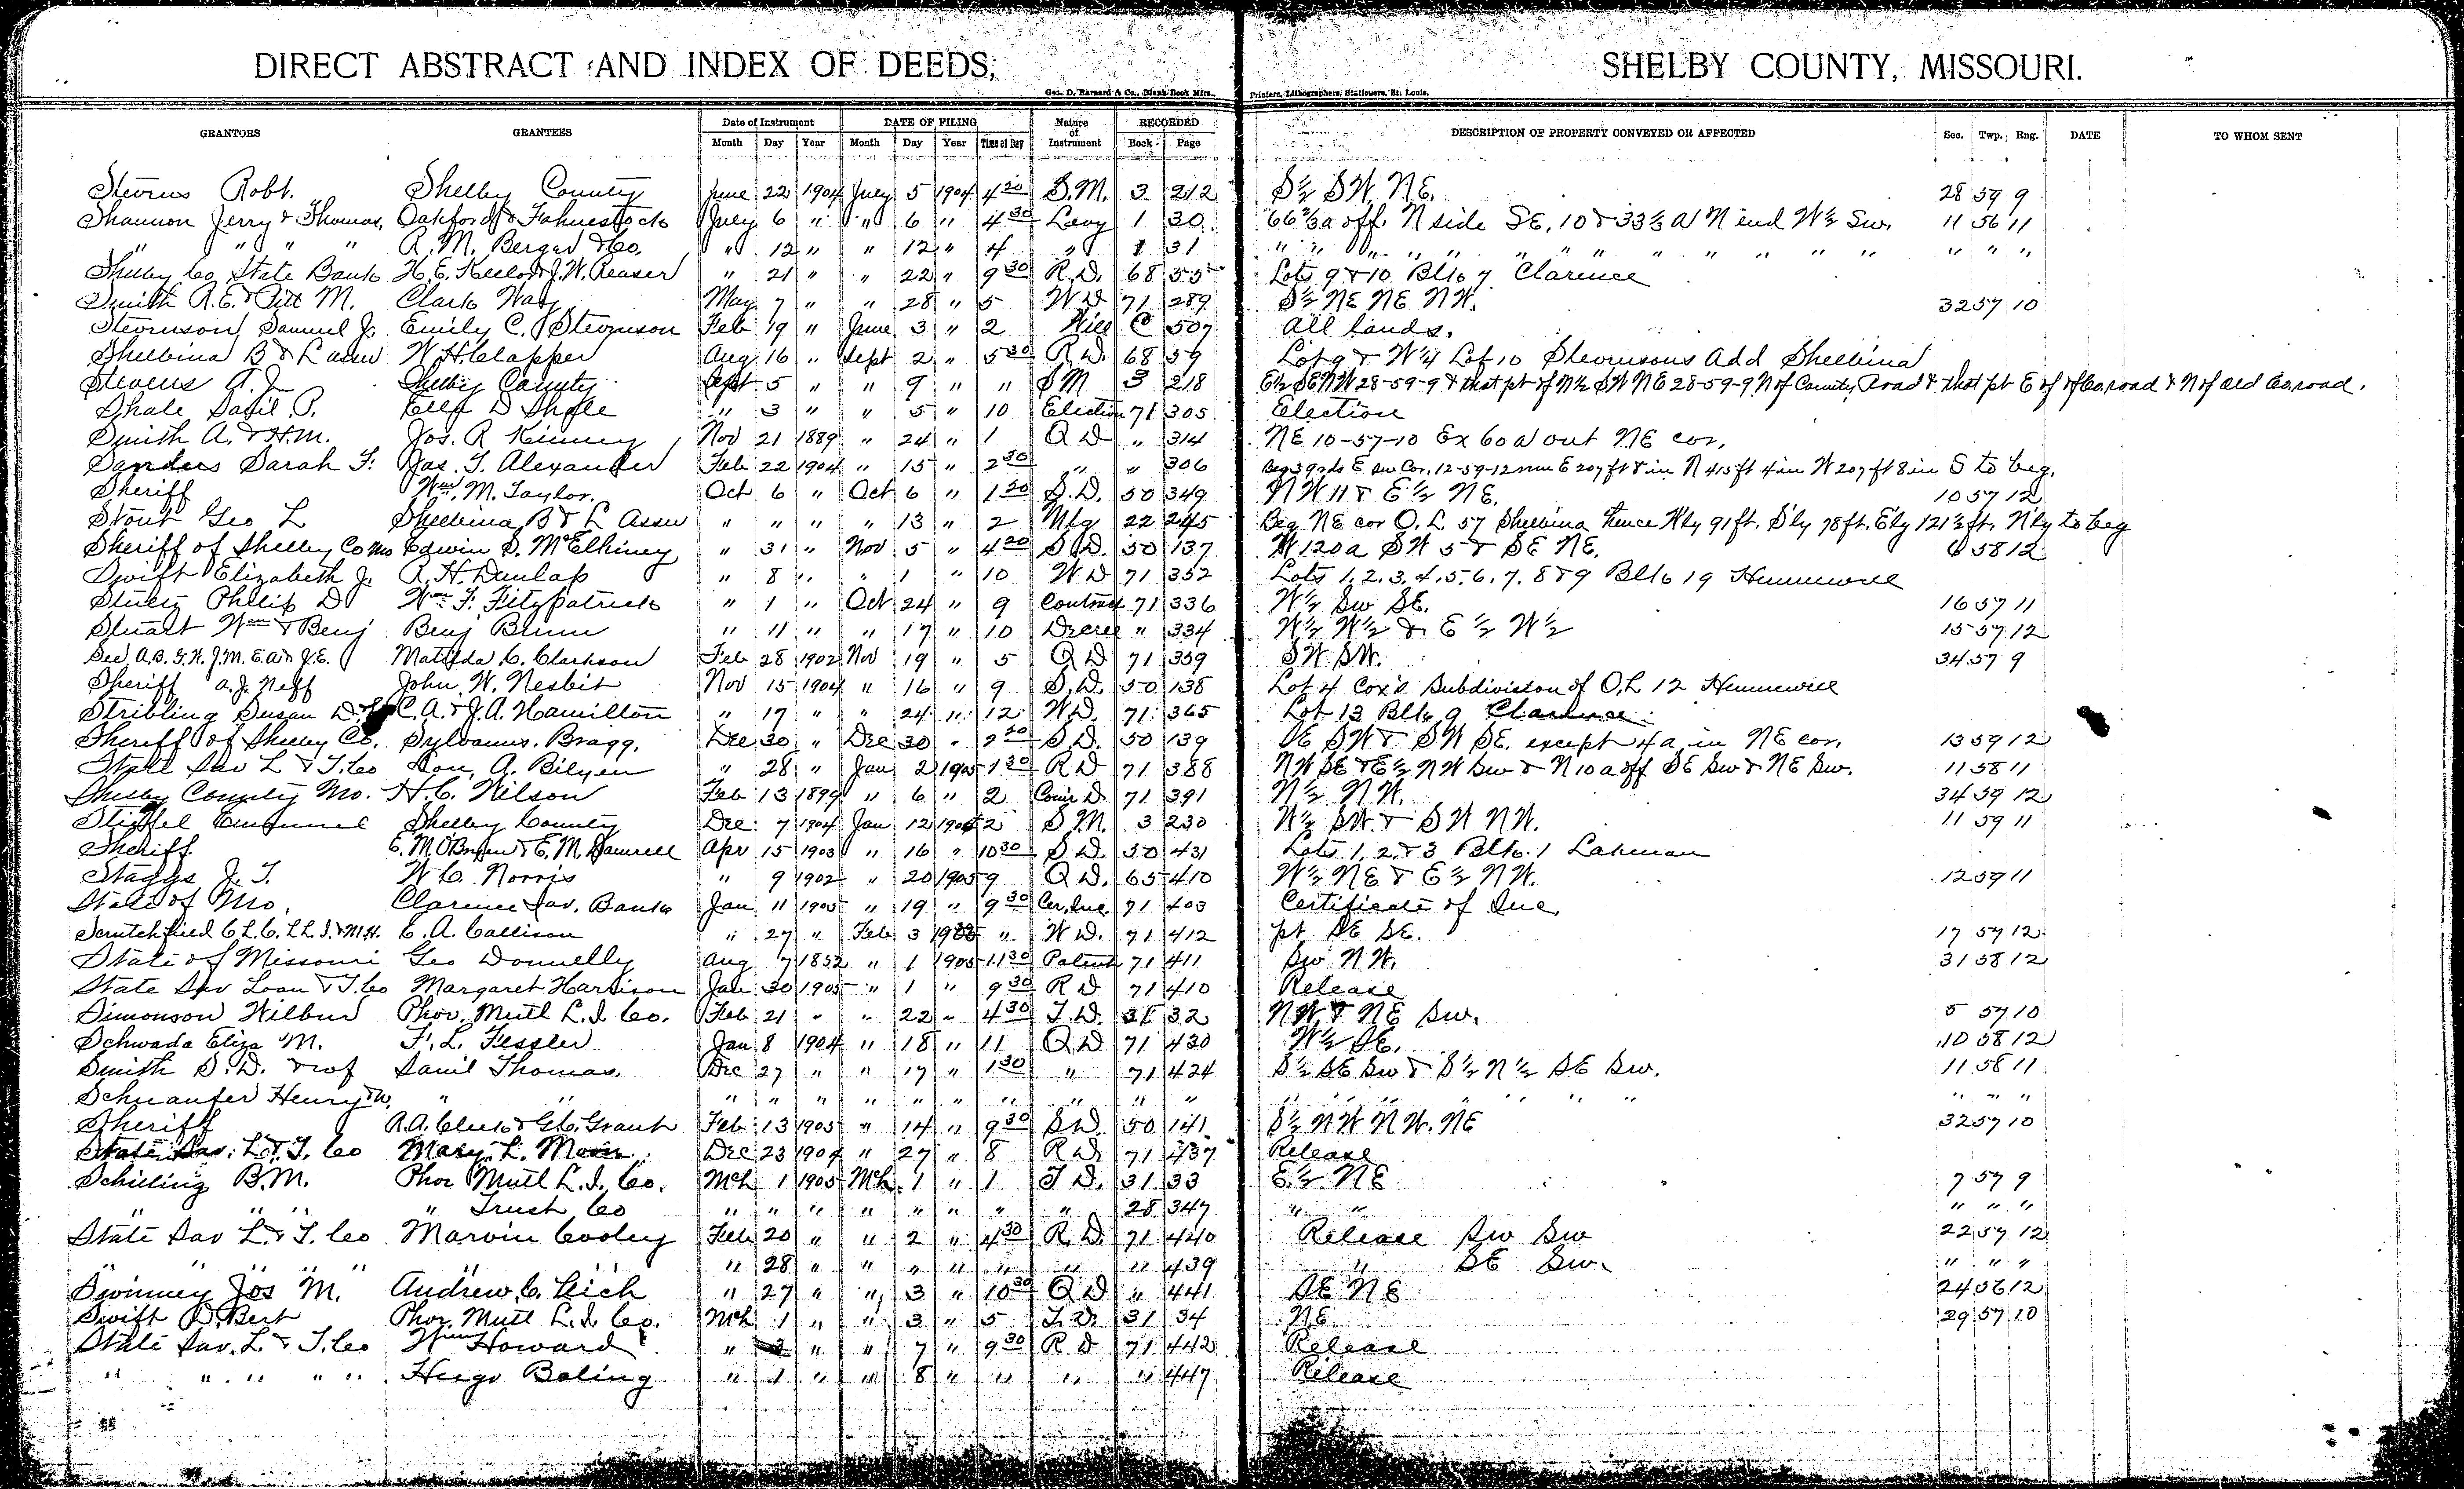 DIRECT ABSTRACT AND INDEX OF DEEDS, SHELBY COUNTY, MISSOURI.
Geo. D. Barnard & Co., Blank Book Mfrs., Printers, Lithographers, Stationers, St. Louis.
GRANTORS GRANTEES Date of Instrument DATE OF FILING Nature of Instrument RECORDED DESCRIPTION OF PROPERTY CONVEYED OR AFFECTED Sec. Twp. Rng. DATE TO WHOM SENT
Month Day Year Month Day Year Time of Day Book Page
Stevens Robt. Shelby County June 22 1904 July 5 1904 4 30 S.M. 3 212 S½ SW NE. 28 59 9
Shannon Jerry & Thomas, Oakford & Fahnestock July 6 " " 6 " 4 30 Levy 1 30 66⅔a off N side SE, 10 & 33⅓ a N end W½ Sw. 11 56 11
" " " " R. M. Berger & Co. " 12 " " 12 " 4 " 1 31 " " " " " " " " " " " " "
Shelby Co State Bank H. E. & J. W. Reaser " 21 " " 22 " 9 30 R.D. 68 55 Lots 9 & 10 Blk 7 Clarence
Smith A. E. & M. Clark Way May 7 " " 28 " 5 W D 71 289 S½ NE NE NW. 32 57 10
Stevenson Samuel J. Emily C. Stevenson Feb 19 " June 3 " 2 Will C 507 All lands.
Shelbina B & L assn W. H. Clapper Aug 16 " Sept 2 " 5 30 R D. 68 59 Lot 9 & W¼ Lot 10 Stevensons Add Shelbina
Stevens A. J. Shelby County Sept 5 " " 9 " " S M 3 218 E½ SE NW 28-59-9 & that pt of N½ SW NE 28-59-9 N of County Road & that pt E of of Co road & N of old Co road.
Shale P. D Shale " 3 " " 5 " 10 Election 71 305 Election
Smith A. & H. M. Jos. R Kinney Nov 21 1889 " 24 " 1 Q D " 314 NE 10-57-10 Ex 60 a out NE cor,
Sanders Sarah F. Jas. T. Alexander Feb 22 1904 " 15 " 2 30 " " 306 Beg 39 rds E Sw Cor. 12-59-12 run E 207 ft 8 in N 415 ft 4 in W 207 ft 8 in S to beg.
Sheriff Wm. M. Taylor. Oct 6 " Oct 6 " 1 30 S.D. 50 349 NW 11 & E½ NE. 10 57 12
Stout Geo L Shelbina B & L Assn " " " " 13 " 2 Mtg 22 245 Beg NE cor O. L 57 Shelbina thence Wly 91 ft. Sly 78 ft. Ely 121½ ft. Nly to beg
Sheriff of Shelby Co Mo Edwin S. McElhiney " 31 " Nov 5 " 4 30 S D. 50 137 W 120 a SW 5 & SE NE. 6 58 12
Swift Elizabeth J. R. H. Dunlap " 8 " " 1 " 10 W D 71 352 Lots 1, 2, 3, 4, 5, 6, 7, 8 & 9 Blk 19 Hunnewell
Stultz Phillip D Wm F. Fitzpatrick " 1 " Oct 24 " 9 Contract 71 336 W½ Sw SE. 16 57 11
Stuart Wm & Benj Benj Bunn " 11 " " 17 " 10 Decree " 334 W½ W½ & E½ W½ 15 57 12
See, A.B. G.H. J.M. E.A. & J.E. Matilda C. Clarkson Feb 28 1902 Nov 19 " 5 Q D 71 359 SW SW. 34 57 9
Sheriff A. J. Neff John W. Nesbit Nov 15 1904 " 16 " 9 S. D. 50 138 Lot 4 Cox's Subdivision of O. L 12 Hunnewell
Stribling Susan D. C. A. & J. A. Hamilton " 17 " " 24 " 12 W D. 71 365 Lot 13 Blk 9 Clarence
Sheriff of Shelby Co. Sylvanus Bragg. Dec 30 " Dec 30 " 2 30 S D. 50 139 SE SW & SW SE. except 4 a in NE cor. 13 59 12
State Sav L & T. Co Don. A. Bilyeu " 28 " Jan 2 1905 1 30 R D 71 388 NW SE & E½ NW Sw & N 10 a off SE Sw & NE Sw. 11 58 11
Shelby County Mo. H. C. Wilson Feb 13 1899 " 6 " 2 Com'r D. 71 391 N½ NW. 34 59 12
Emanuel Shelby County Dec 7 1904 Jan 12 1905 2 S M. 3 230 W½ SW & SW NW. 11 59 11
Sheriff E. M. O'Bryen & E. M. Damrell Apr 15 1903 " 16 " 10 30 S D. 50 431 Lots 1, 2 & 3 Blk 1 Lakenan
Staggs J. T. W. C. Norris " 9 1902 " 20 1905 9 Q D. 65 410 W½ NE & E½ NW. 12 59 11
State of Mo. Clarence Sav. Bank Jan 11 1905 " 19 " 9 30 Cer. Inc. 71 403 Certificate of Inc.
Scrutchfield C L. C. L L. J. & M. H. E. A. Callison " 27 " Feb 3 1905 " W D. 71 412 pt SE SE. 17 57 12
State of Missouri Geo Donnelly Aug 7 1852 " 1 1905 11 30 Patent 71 411 Sw NW. 31 58 12
State Sav Loan & T. Co Margaret Harrison Jan 30 1905 " 1 " 9 30 R D 71 410 Release
Simonson Wilbur Phoe. Mutl L. I. Co. Feb 21 " " 22 " 4 30 T. D. 31 32 NW & NE Sw. 5 57 10
Schwada Eliza M. F. L. Fessler Jan 8 1904 " 18 " 11 Q D 71 430 W½ SE. 10 58 12
Smith S. D. & wf Danil Thomas. Dec 27 " " 17 " 1 30 " 71 424 S½ SE Sw & S½ N½ SE Sw. 11 58 11
Schnaufer Henry & W. " " " " " " " " " " " " " " " " " " " "
Sheriff R. A. & G. C. Grant Feb 13 1905 " 14 " 9 30 S D. 50 141 S½ NW NW. NE 32 57 10
State Sav. L & T. Co Mary L. Moon Dec 23 1904 " 27 " 8 R D. 71 437 Release
Schilling B. M. Phoe Mutl L. I. Co. Mch 1 1905 Mch 1 " 1 T D. 31 33 E½ NE 7 57 9
" " " " Trust Co " " " " " " " " 28 347 " " " " "
State Sav L. & T. Co Marvin Cooley Feb 20 " " 2 " 4 30 R. D. 71 440 Release Sw Sw 22 57 12
" " " " " 28 " " " " " " " 439 " SE Sw. " " "
Swinney Jos M. Andrew C. Leich " 27 " " 3 " 10 30 Q D " 441 SE NE 24 56 12
Swift D. Bert Phoe. Mutl L. I. Co. Mch 1 " " 3 " 5 T. D. 31 34 NE 29 57 10
State Sav. L. & T. Co Wm Howard " " " 7 " 9 30 R D 71 442 Release
" " " " " Hugo Boling " 1 " " 8 " " " " 447 Release